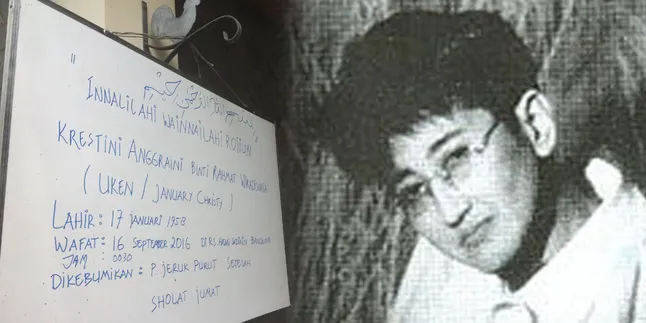 "بسم الله الرحمن الرحيم"
INNALILAHI WAINNAILAHI ROJIUN
KRESTINI ANGGRAINI BINTI RAHMAT
( UKEN / JANUARY CHRISTY )
LAHIR : 17 JANUARI 1958
WAFAT : 16 SEPTEMBER 2016 DI RS.
JAM : 0030
DIKEBUMIKAN : P. JERUK PURUT SETELAH
SHOLAT JUMAT